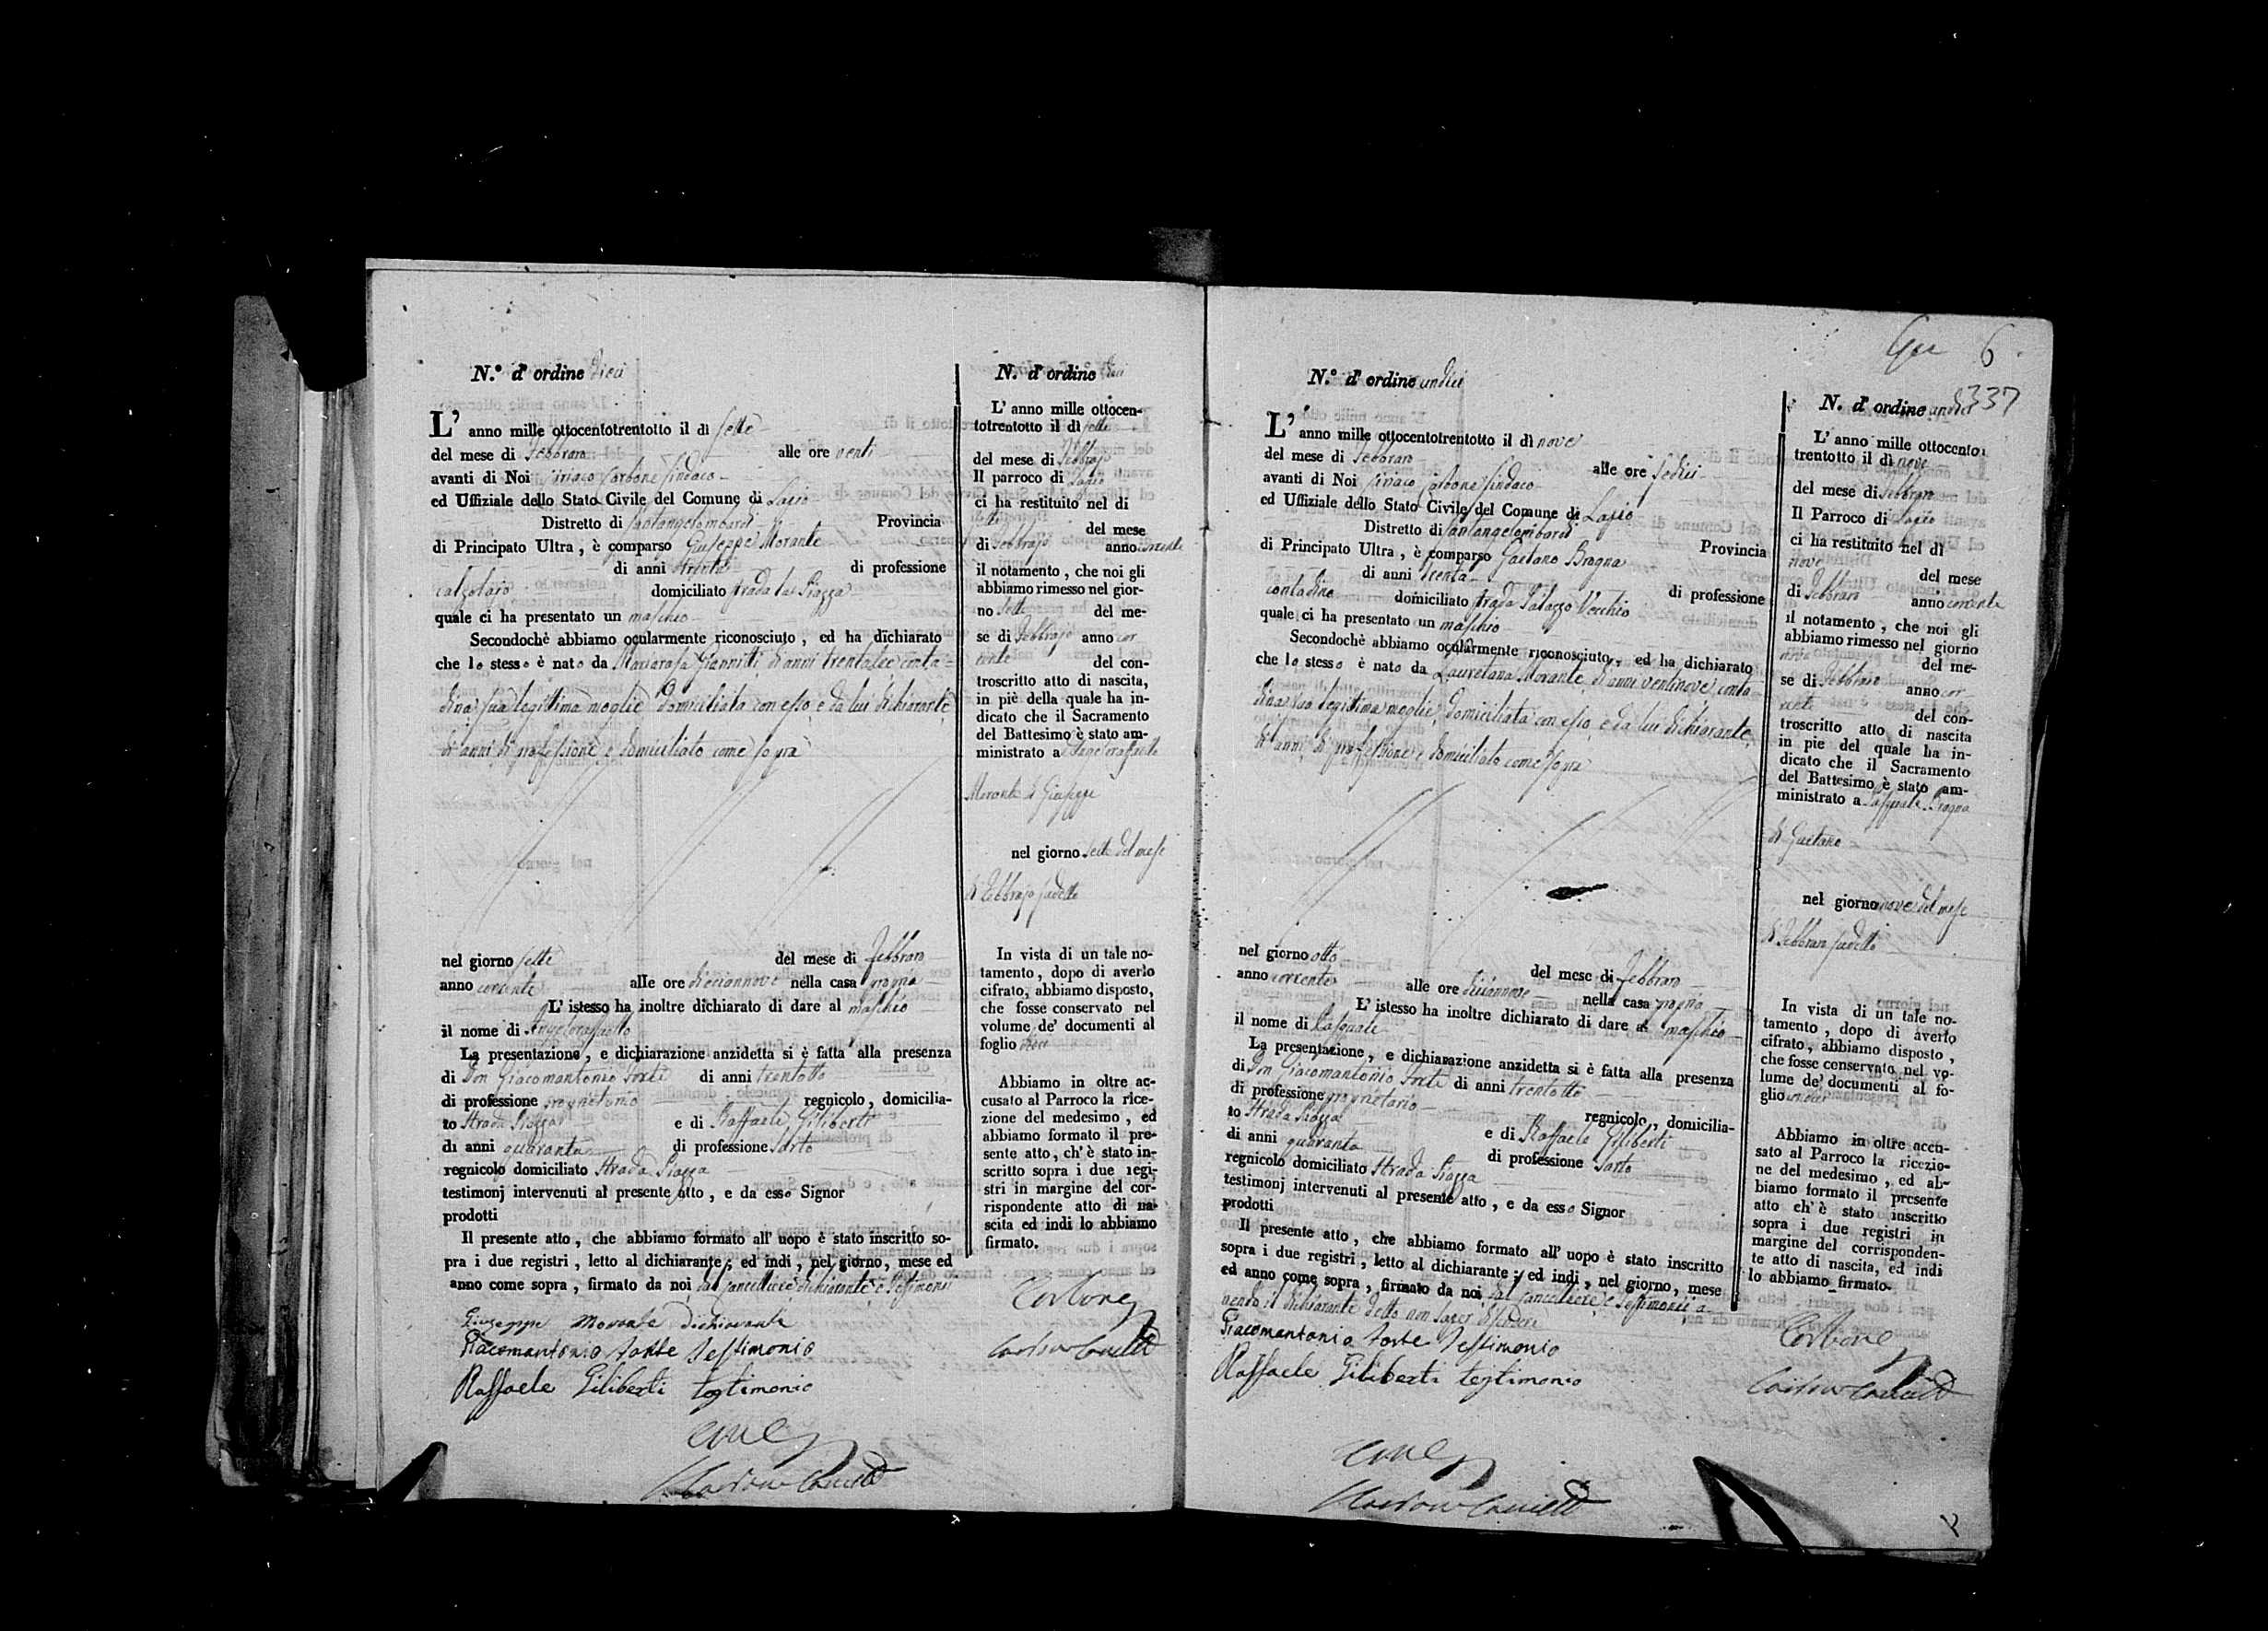 N.° d' ordine dieci
L' anno mille ottocentotrentotto il dì sette
del mese di Febbraro alle ore venti
avanti di Noi Ciriaco Carbone Sindaco
ed Uffiziale dello Stato Civile del Comune di Lapio
Distretto di Santangelombardi Provincia
di Principato Ultra, è comparso Giuseppe Morante
di anni trenta di professione
calzolajo domiciliato strada la Piazza
quale ci ha presentato un maschio
Secondochè abbiamo ocularmente riconosciuto, ed ha dichiarato
che lo stesso è nato da Mariarosa Gianniti di anni trentasei conta=
dina sua legittima moglie domiciliata con esso, e da lui dichiarante
di anni di professione e domiciliato come sopra
nel giorno sette del mese di Febbraro
anno corrente alle ore dieciannove nella casa propria
L' istesso ha inoltre dichiarato di dare al maschio
il nome di Angeloraffaello
La presentazione, e dichiarazione anzidetta si è fatta alla presenza
di Don Giacomantonio Forte di anni trentotto
di professione proprietario regnicolo, domicilia-
to Strada Piazza e di Raffaele Giliberti
di anni quaranta di professione Sarto
regnicolo domiciliato Strada Piazza
testimonj intervenuti al presente atto, e da esso Signor
prodotti
Il presente atto, che abbiamo formato all' uopo è stato inscritto so-
pra i due registri, letto al dichiarante; ed indi, nel giorno, mese ed
anno come sopra, firmato da noi dal Cancelliere dichiarante e Testimoni
Giuseppe Morante dichiarante
Giacomantonio Forte Testimonio
Raffaele Giliberti testimonio
N. d' ordine dieci
L' anno mille ottocen-
totrentotto il dì sette
del mese di Febbrajo
Il parroco di Lapio
ci ha restituito nel dì
sette del mese
di Febbrajo anno corrente
il notamento, che noi gli
abbiamo rimesso nel gior-
no sette del me-
se di Febbrajo anno cor
rente del con-
troscritto atto di nascita,
in piè della quale ha in-
dicato che il Sacramento
del Battesimo è stato am-
ministrato a Angeloraffaello
Morante di Giuseppe
nel giorno sette del mese
di Febbrajo sudetto
In vista di un tale no-
tamento, dopo di averlo
cifrato, abbiamo disposto,
che fosse conservato nel
volume de' documenti al
foglio dieci
Abbiamo in oltre ac-
cusato al Parroco la rice-
zione del medesimo, ed
abbiamo formato il pre-
sente atto, ch' è stato in-
scritto sopra i due regi-
stri in margine del cor-
rispondente atto di na-
scita ed indi lo abbiamo
firmato.
Carbone
6
337
N.° d' ordine undici
L' anno mille ottocentotrentotto il dì nove
del mese di Febbraro alle ore sedici
avanti di Noi Ciriaco Carbone Sindaco
ed Uffiziale dello Stato Civile del Comune di Lapio
Distretto di Santangelombardi Provincia
di Principato Ultra, è comparso Gaetano Bragna
di anni trenta di professione
contadino domiciliato strada Palazzo Vecchio
quale ci ha presentato un maschio
Secondochè abbiamo ocularmente riconosciuto, ed ha dichiarato
che lo stesso è nato da Lauretana Morante di anni ventinove conta
dina sua legittima moglie, domiciliata con esso, e da lui dichiarante
di anni, di professione e domiciliato come sopra
nel giorno otto del mese di Febbraro
anno corrente alle ore diciannove nella casa propria
L' istesso ha inoltre dichiarato di dare al maschio
il nome di Pasquale
La presentazione, e dichiarazione anzidetta si è fatta alla presenza
di Don Giacomantonio Forte di anni trentotto
di professione proprietario regnicolo, domicilia-
to Strada Piazza e di Raffaele Giliberti
di anni quaranta di professione Sarto
regnicolo domiciliato Strada Piazza
testimonj intervenuti al presente atto, e da esso Signor
prodotti
Il presente atto, che abbiamo formato all' uopo è stato inscritto
sopra i due registri, letto al dichiarante; ed indi, nel giorno, mese
ed anno come sopra, firmato da noi dal Cancelliere e Testimonii a
vendo il dichiarante detto non saper scrivere
Giacomantonio Forte Testimonio
Raffaele Giliberti testimonio
N. d' ordine undici
L' anno mille ottocento
trentotto il dì nove
del mese di Febbraro
Il Parroco di Lapio
ci ha restituito nel dì
nove del mese
di Febbraro anno corrente
il notamento, che noi gli
abbiamo rimesso nel giorno
nove del me-
se di Febbraro anno cor
rente del con-
troscritto atto di nascita
in pie del quale ha in-
dicato che il Sacramento
del Battesimo è stato am-
ministrato a Pasquale Bragna
di Gaetano
nel giorno nove del mese
di Febbraro sudetto
In vista di un tale no-
tamento, dopo di averlo
cifrato, abbiamo disposto,
che fosse conservato nel vo-
lume de' documenti al fo-
glio undici
Abbiamo in oltre accu-
sato al Parroco la ricezio-
ne del medesimo, ed ab-
biamo formato il presente
atto ch' è stato inscritto
sopra i due registri in
margine del corrisponden-
te atto di nascita, ed indi
lo abbiamo firmato.
Carbone